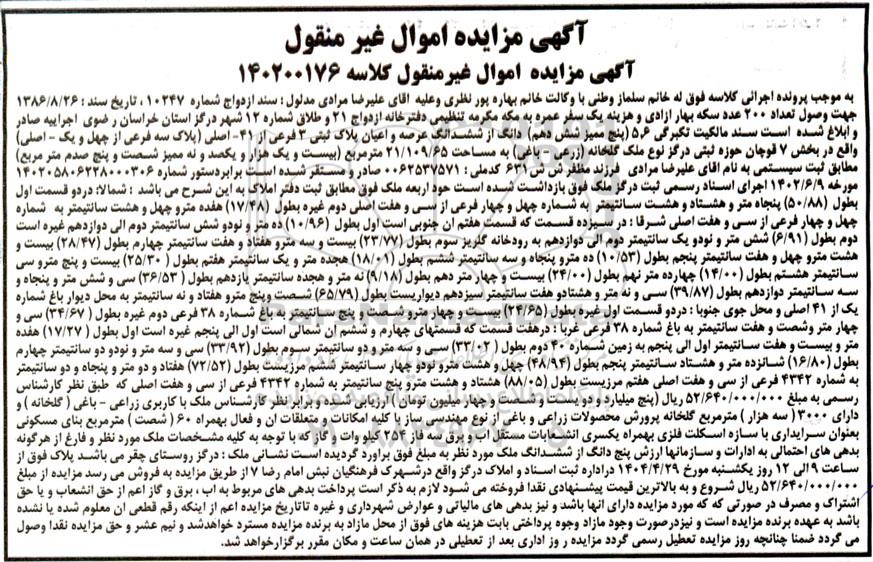 آگهی مزایده اموال غیر منقول
آگهی مزایده اموال غیرمنقول کلاسه ۱۴۰۲۰۰۱۷۶
به موجب پرونده اجرائی کلاسه فوق له خانم سلماز وطنی با وکالت خانم بهاره پور نظری وعلیه اقای علیرضا مرادی مدلول : سند ازدواج شماره ۱۰۲۴۷ ، تاریخ سند : ۱۳۸۶/۸/۲۶
جهت وصول تعداد ۲۰۰ عدد سکه بهار ازادی و هزینه یک سفر عمره به مکه مکرمه تنظیمی دفترخانه ازدواج ۲۱ و طلاق شماره ۱۲ شهر درگز استان خراسان رضوی اجراییه صادر
و ابلاغ شده است سند مالکیت تکبرگی ۵٫۶ (پنج ممیز شش دهم) دانگ از ششدانگ عرصه و اعیان پلاک ثبتی ۳ فرعی از ۴۱- اصلی (پلاک سه فرعی از چهل و یک - اصلی)
واقع در بخش ۷ قوچان حوزه ثبتی درگز نوع ملک گلخانه (زراعی - باغی) به مساحت ۲۱/۱۰۹/۶۵ مترمربع (بیست و یک هزار و یکصد و نه ممیز شصت و پنج صدم متر مربع)
مطابق ثبت سیستمی به نام اقای علیرضا مرادی فرزند مظفر ش ش ۶۳۱ کدملی : ۰۰۶۲۵۳۷۵۷۱ صادر و مستقر شده است برابردستور شماره ۱۴۰۲۰۵۸۰۶۲۲۸۰۰۰۳۰۶
مورخه ۱۴۰۲/۶/۹ اجرای اسناد رسمی ثبت درگز ملک فوق بازداشت شده است حود اربعه ملک فوق مطابق ثبت دفتر املاک به این شرح می باشد : شمالا: دردو قسمت اول
بطول (۵۰/۸۸) پنجاه متر و هشتاد و هشت سانتیمتر به شماره چهل و چهار فرعی از سی و هفت اصلی دوم غیره بطول (۱۷/۴۸) هفده مترو چهل و هشت سانتیمتر به شماره
چهل و چهار فرعی از سی و هفت اصلی شرقا : در سیزده قسمت که قسمت هفتم ان جنوبی است اول بطول (۱۰/۹۶) ده متر و نودو شش سانتیمتر دوم الی دوازدهم غیره است
دوم بطول (۶/۹۱) شش متر و نودو یک سانتیمتر دوم الی دوازدهم به رودخانه گلریز سوم بطول (۲۳/۷۷) بیست و سه مترو هفتاد و هفت سانتیمتر چهارم بطول (۲۸/۴۷) بیست و
هشت مترو چهل و هفت سانتیمتر پنجم بطول (۱۰/۵۳) ده مترو پنجاه و سه سانتیمتر ششم بطول (۱۸/۰۱) هجده متر و یک سانتیمتر هفتم بطول (۲۵/۳۰) بیست و پنج مترو سی
سانتیمتر هشتم بطول (۱۴/۰۰) چهارده متر نهم بطول (۲۴/۰۰) بیست و چهار متر دهم بطول (۹/۱۸) نه متر و هجده سانتیمتر یازدهم بطول (۳۶/۵۳) سی و شش متر و پنجاه و
سه سانتیمتر دوازدهم بطول (۳۹/۸۷) سی و نه متر و هشتادو هفت سانتیمتر سیزدهم دیواریست بطول (۶۵/۷۹) شصت وپنج مترو هفتاد و نه سانتیمتر به محل دیوار باغ شماره
یک از ۴۱ اصلی و محل جوی جنوبا : دردو قسمت اول غیره بطول (۲۴/۶۵) بیست و چهار مترو شصت و پنج سانتیمتر به باغ شماره ۳۸ فرعی دوم غیره بطول (۳۴/۶۷) سی و
چهار متر وشصت و هفت سانتیمتر به باغ شماره ۳۸ فرعی غربا : درهفت قسمت که قسمتهای چهارم و ششم ان شمالی است اول الی پنجم غیره است اول بطول (۱۷/۲۷) هفده
متر و بیست و هفت سانتیمتر اول الی پنجم به زمین شماره ۴۰ دوم بطول (۳۳/۰۲) سی و سه متر و دو سانتیمتر سوم بطول (۳۳/۹۲) سی و سه متر و نودو دو سانتیمتر چهارم
بطول (۱۶/۸۰) شانزده متر و هشتاد سانتیمتر پنجم بطول (۴۸/۹۴) چهل و هشت مترو نودو چهار سانتیمتر ششم مرزیست بطول (۷۲/۵۲) هفتاد و دو متر و پنجاه و دو سانتیمتر
به شماره ۴۳۴۲ فرعی از سی و هفت اصلی هفتم مرزیست بطول (۸۸/۰۵) هشتاد و هشت مترو پنج سانتیمتر به شماره ۴۳۴۲ فرعی از سی و هفت اصلی که طبق نظر کارشناس
رسمی به مبلغ ۵۲/۶۴۰/۰۰۰/۰۰۰ ریال (پنج میلیارد و دویست و شصت و چهار میلیون تومان) ارزیابی شده و برابر نظر کارشناس ملک با کاربری زراعی - باغی ( گلخانه ) و
دارای ۳۰۰۰ (سه هزار ) مترمربع گلخانه پرورش محصولات زراعی و باغی از نوع مهندسی ساز با کلیه امکانات و متعلقات ان و فعال بهمراه ۶۰ ( شصت ) مترمربع بنای مسکونی
بعنوان سرایداری با سازه اسکلت فلزی بهمراه یکسری انشعابات مستقل اب و برق سه فاز ۲۵۴ کیلو وات و گاز که با توجه به کلیه مشخصات ملک مورد نظر و فارغ از هرگونه
بدهی های احتمالی به ادارات و سازمانها ارزش پنج دانگ از ششدانگ ملک مورد نظر به مبلغ فوق براورد گردیده است نشانی ملک : درگز روستای چقر می باشد پلاک فوق از
ساعت ۹ الی ۱۲ روز یکشنبه مورخ ۱۴۰۴/۴/۲۹ دراداره ثبت اسناد و املاک درگز واقع درشهرک فرهنگیان نبش امام رضا ۷ از طریق مزایده به فروش می رسد مزایده از مبلغ
۵۲/۶۴۰/۰۰۰/۰۰۰ ریال شروع و به بالاترین قیمت پیشنهادی نقدا فروخته می شود لازم به ذکر است پرداخت بدهی های مربوط به اب ، برق و گاز اعم از حق انشعاب و یا حق
اشتراک و مصرف در صورتی که که مورد مزایده دارای انها باشد و نیز بدهی های مالیاتی و عوارض شهرداری و غیره تاتاریخ مزایده اعم از اینکه رقم قطعی ان معلوم شده یا نشده
باشد به عهده برنده مزایده است و نیزدرصورت وجود مازاد وجوه پرداختی بابت هزینه های فوق از محل مازاد به برنده مزایده مسترد خواهدشد و نیم عشر و حق مزایده نقدا وصول
می گردد ضمنا چنانچه روز مزایده تعطیل رسمی گردد مزایده ر روز اداری بعد از تعطیلی در همان ساعت و مکان مقرر برگزارخواهد شد.